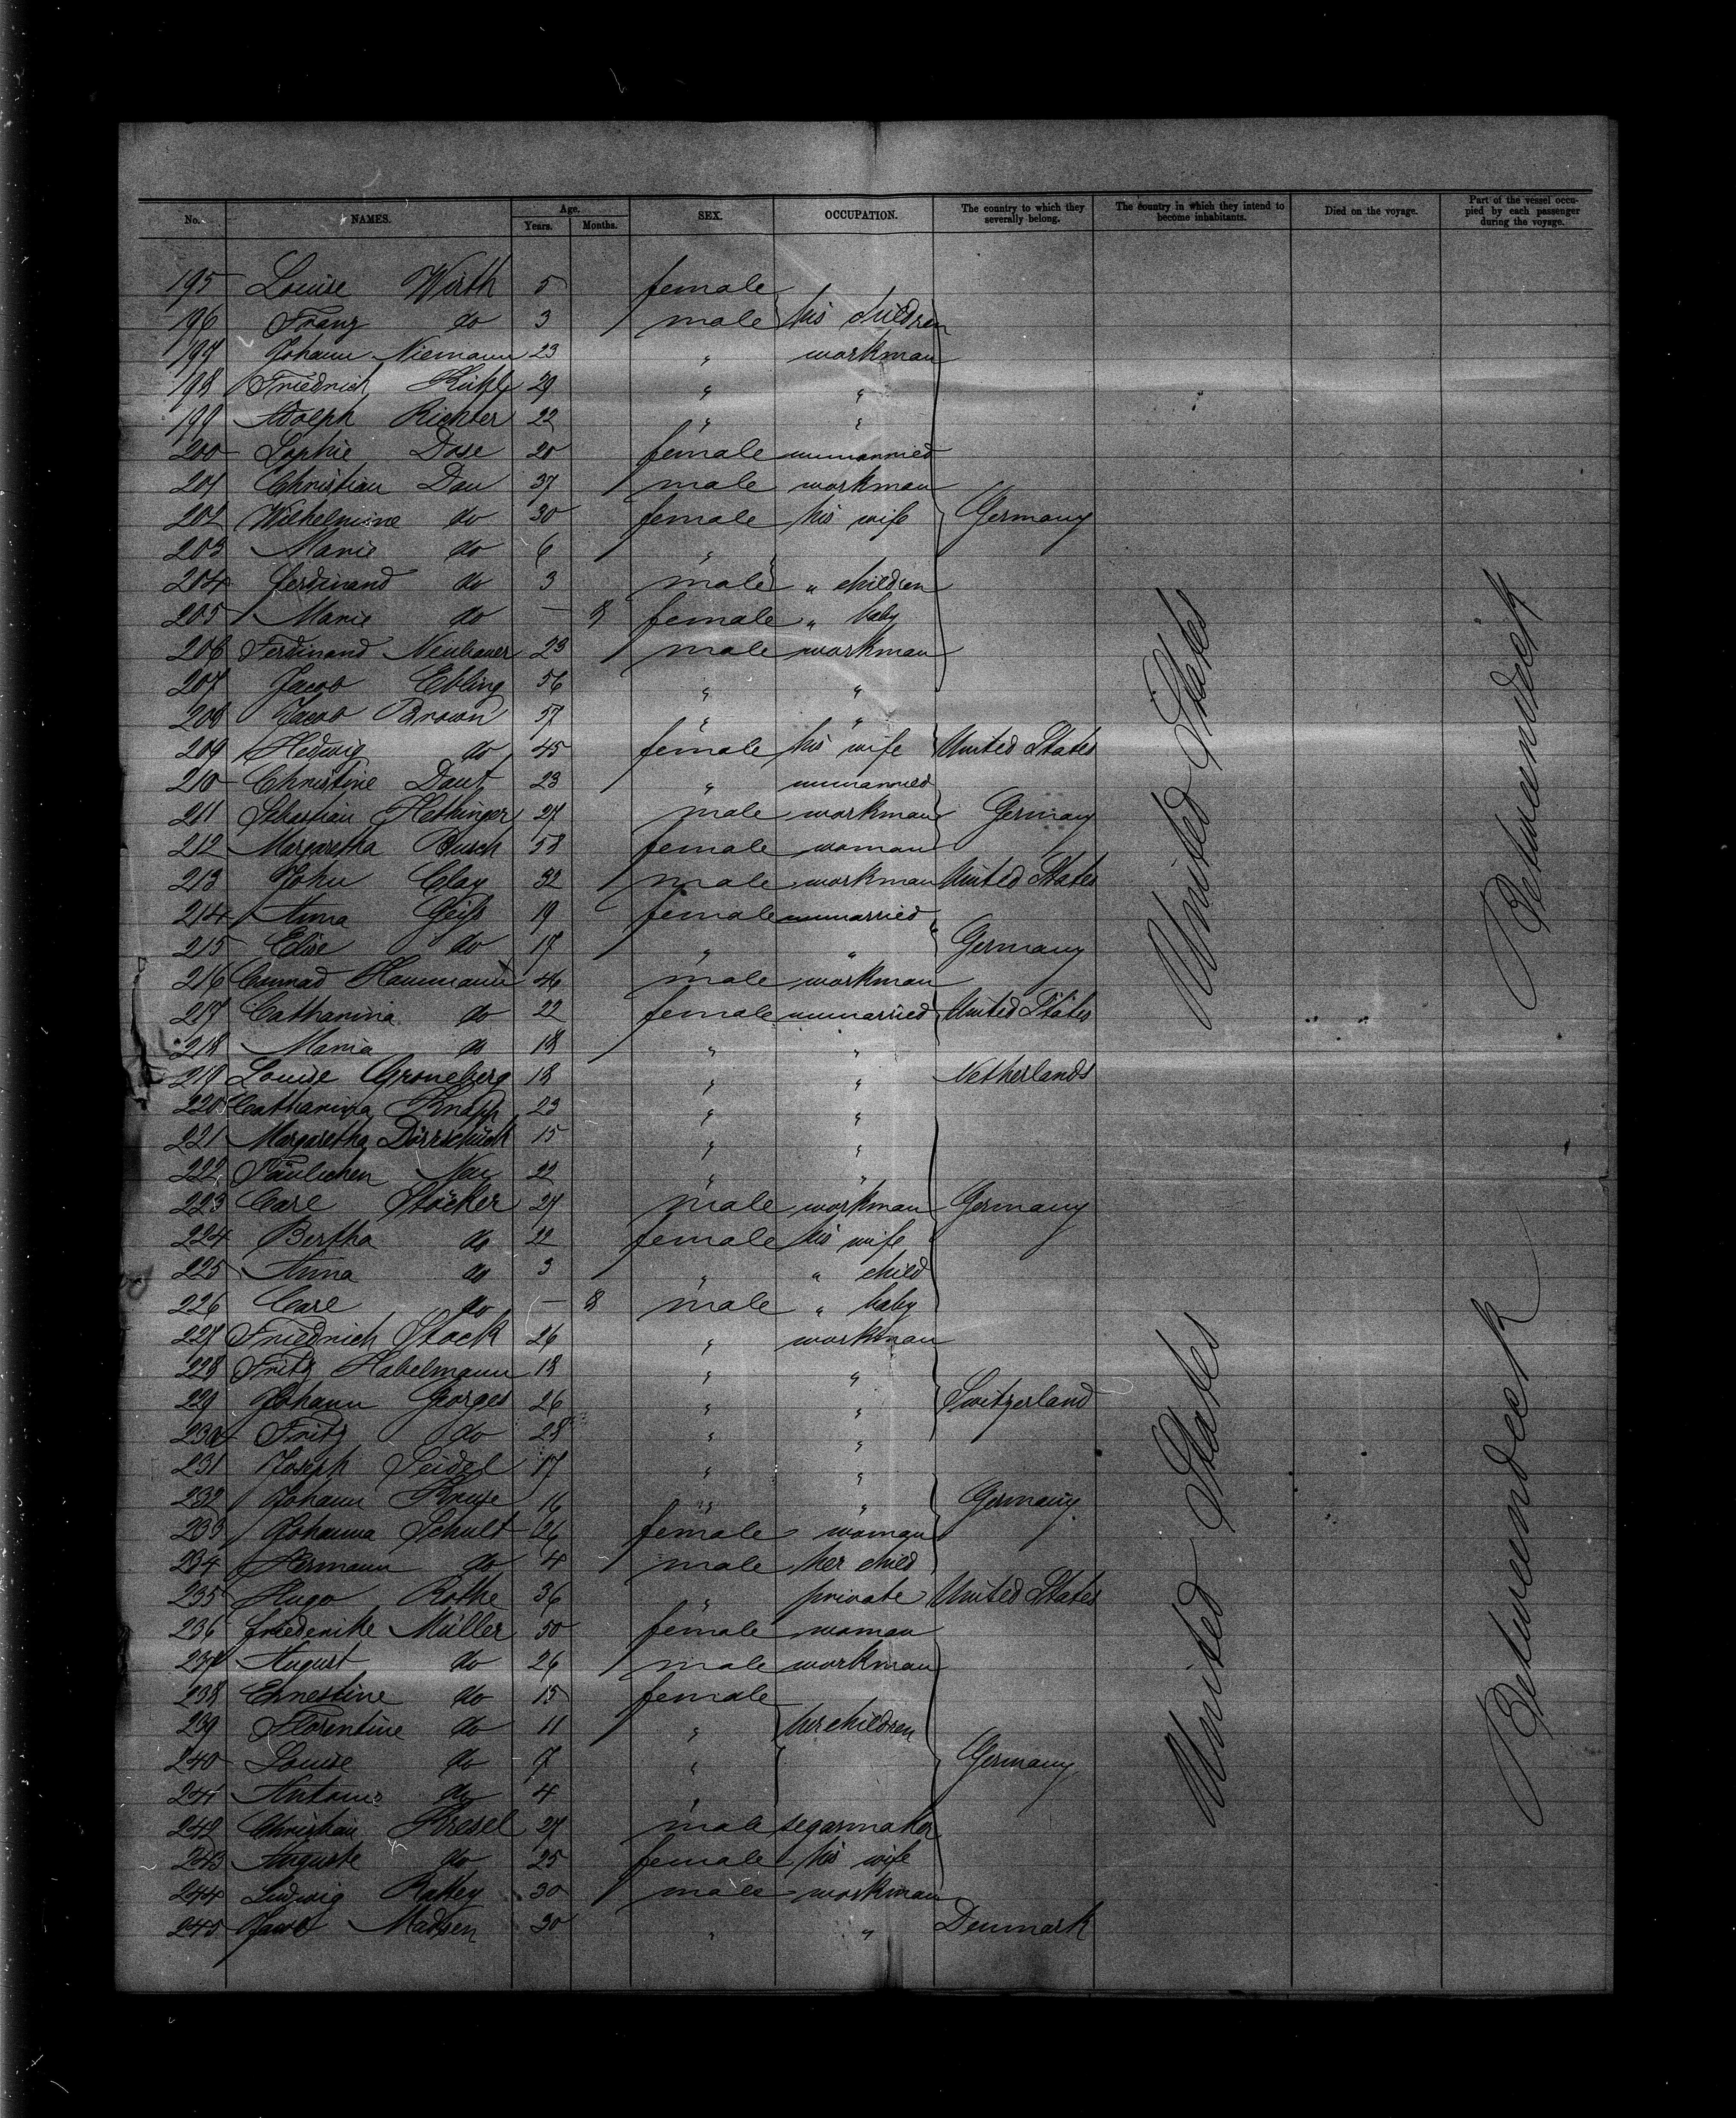 No. NAMES. Age. Years. Months. SEX. OCCUPATION. The country to which they severally belong. The country in which they intend to become inhabitants. Died on the voyage. Part of the vessel occupied by each passenger during the voyage.
195 Louise Wirth 5 female
196 Franz do 3 male his children
197 Johann Niemann 23 " workman
198 Friedrich 29 " "
199 Adolph Richter 22 " "
200 Sophie Dose 20 female unmarried
201 Christian Dau 37 male workman
202 Wilhelmine do 30 female his wife Germany
203 Marie do 6 "
204 Ferdinand do 3 male " children
205 Marie do — 9 female " baby
206 Ferdinand Neubauer 23 male workman
207 Jacob Ebling 56 " "
208 Jacob Brown 57 " "
209 Hedwig do 45 female his wife United States
210 Christine Daut 23 " unmarried
211 Sebastian Hettinger 27 male workman Germany
212 Margaretha Busch 58 female woman
213 John Clay 32 male workman United States
214 Anna Geiß 19 female unmarried
215 Elise do 17 " " Germany
216 Conrad Hammann 46 male workman
217 Catharina do 22 female unmarried United States
218 Maria do 18 " "
219 Louise Groneberg 18 " " Netherlands
220 Catharina Knapp 23 " "
221 Margaretha Dörrschuck 15 " "
222 Paulichen Nau 22 " "
223 Carl Stöcker 27 male workman Germany
224 Bertha do 22 female his wife
225 Anna do 3 " " child
226 Carl do — 8 male " baby
227 Friedrich Stock 26 " workman
228 Fritz Habelmann 18 " "
229 Johann Georges 26 " " Switzerland
230 Fritz do 28 " "
231 Joseph Seidel 17 " "
232 Johann Kruse 16 " " Germany
233 Johanna Schult 26 female woman
234 Hermann do 4 male her child
235 Hugo Rothe 36 " private United States
236 Friederike Müller 50 female woman
237 August do 26 male workman
238 Ernestine do 15 female
239 Florentine do 11 " her children
240 Louise do 7 " Germany
241 do 4 "
242 Christian Kresel 27 male segarmaker
243 Auguste do 25 female his wife
244 Ludwig 30 male workman
245 Jacob Madsen 30 " " Denmark
United States
Betweendeck
United States
Betweendeck